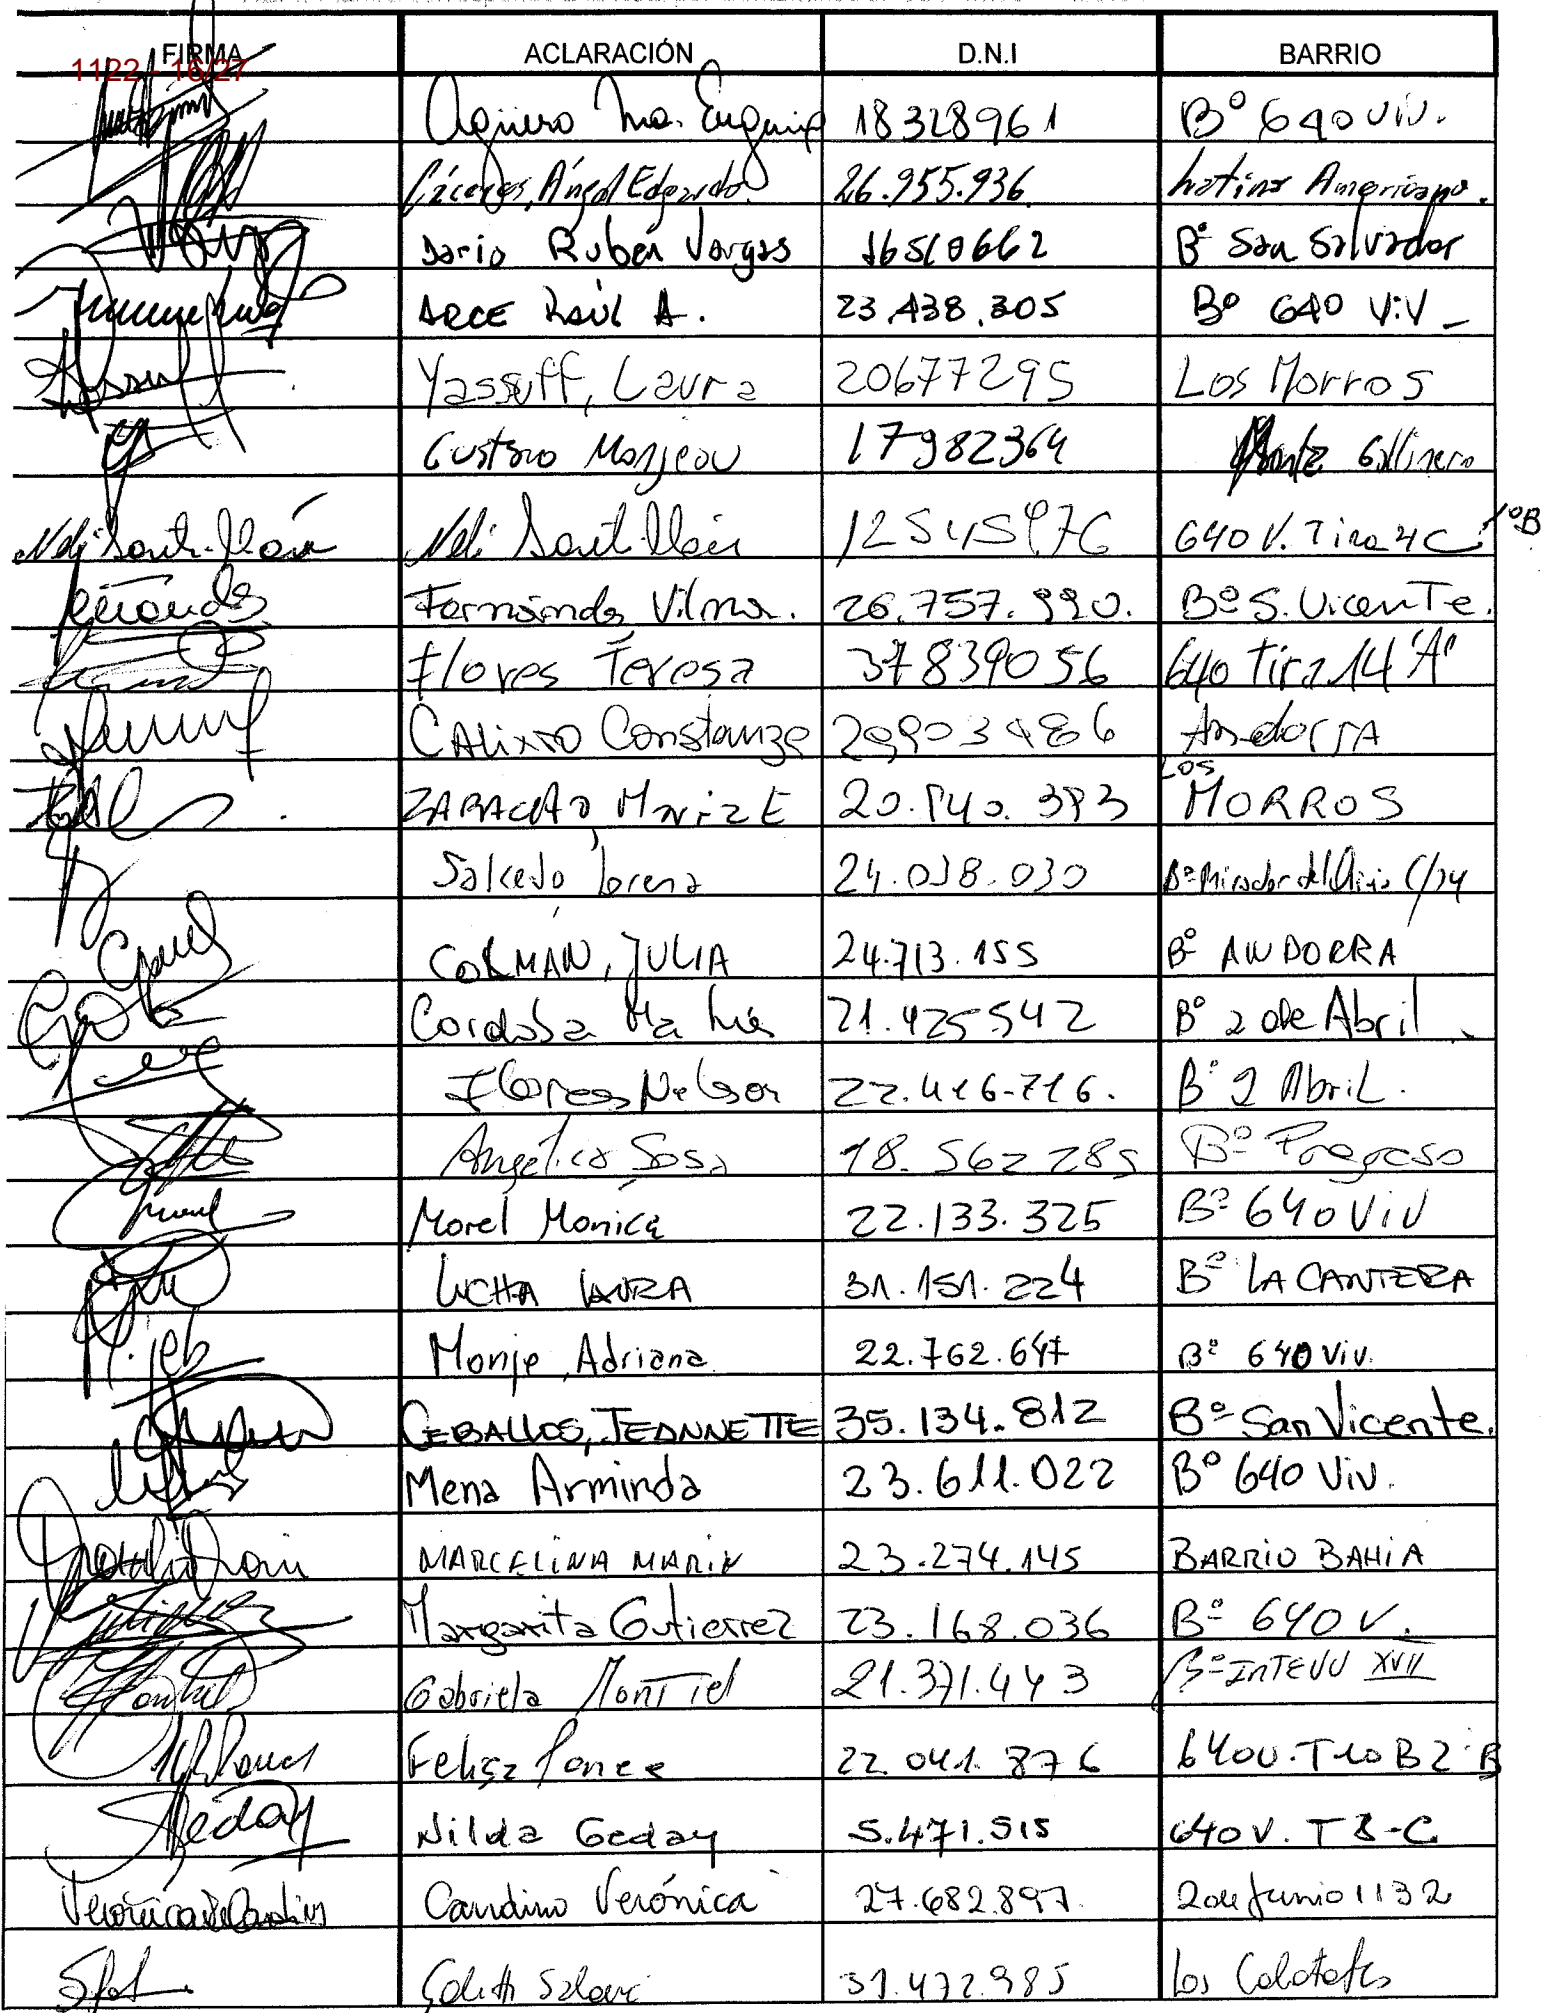 FIRMA ACLARACIÓN D.N.I BARRIO
1122 - 16/27
Aguero Ma. Eugenia 18328961 Bº 640 VIV.
Cáceres, Ángel Edgardo 26.955.936 Latino Americano.
Dario Rubén Vargas 16510662 Bº San Salvador
ARCE RAÚL A. 23.438.305 Bº 640 ViV
Yassuff, Laura 20677295 Los Morros
Gustavo Monjeou 17982364 Monte Gallinero
Neli Santillán Neli Santillán 12545976 640 V. Tira 4C 1ºB
Fernández Vilma. 26.757.990. Bº S. Vicente.
Flores Teresa 37839056 640 Tira 14 "A"
Calixto Constanza 29903486 Andorra
E 20.840.393 LOS MORROS
Salcedo Lorena 24.038.030 Bº Mirador del C/74
COLMAN, JULIA 24.713.155 Bº ANDORRA
Cordoba Ma Inés 21.425542 Bº 2 de Abril
Flores Nelson 22.416-716. Bº 2 Abril.
Angélica Sosa 18.562285 Bº Progreso
Morel Mónica 22.133.325 Bº 640 ViV
LUCHA LAURA 31.151.224 Bº LA CANTERA
Monje, Adriana 22.762.647 Bº 640 Viv.
CEBALLOS, JEANNETTE 35.134.812 Bº San Vicente.
Mena Arminda 23.611.022 Bº 640 Viv.
MARCELINA MARIN 23.274.145 BARRIO BAHIA
Margarita Gutierrez 23.168.036 Bº 640 V.
Gabriela Montiel 21.371.443 Bº INTEVU XVII
Ponce 22.041.876 640V. T10 B2 B
Geday Nilda Geday 5.471.515 640 V. T 8-C
Candino Verónica 27.682.897. 2 de Junio 1132
31.472.985 Los Calafates